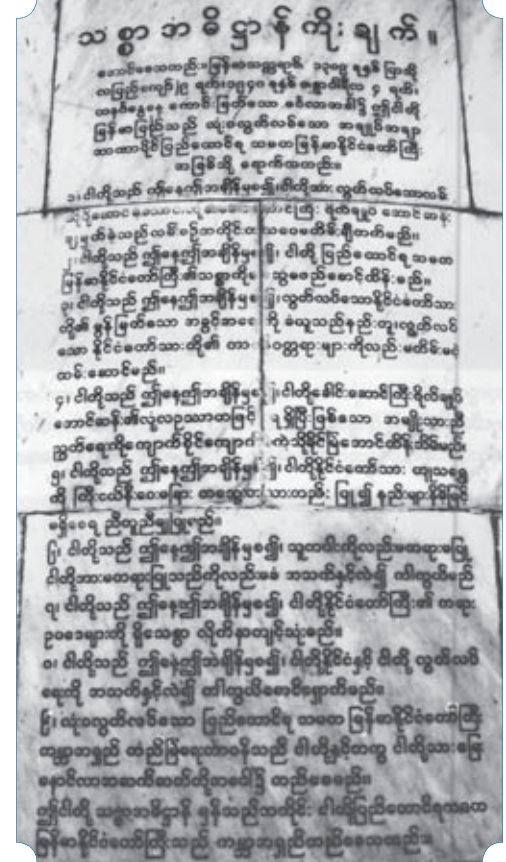 သစ္စာအဓိဋ္ဌာန်ကိုးချက်။
အောင်စေသတည်း။ မြန်မာသက္ကရာဇ် ၁၃၀၉ ခုနှစ် ပြာသို
လပြည့်ကျော် ၉ ရက်၊ ၁၉၄၈ ခုနှစ် ဇန္နဝါရီလ ၄ ရက်၊
ကောင်းမြတ်သော ဤငါတို့
မြန်မာပြည်သည် လုံးဝလွတ်လပ်သော အချုပ်အခြာ
အာဏာပိုင်ပြည်ထောင်စု သမတမြန်မာနိုင်ငံတော်ကြီး
အဖြစ်သို့ ရောက်သတည်း။
၁၊ ငါတို့သည် ဤနေ့ဤအချိန်မှစ၍ လွတ်လပ်သော
အောင်ဆန်း
၂၊ ငါတို့သည် ဤနေ့ဤအချိန်မှစ၍၊ ငါတို့ ပြည်ထောင်စု သမတ
မြန်မာနိုင်ငံတော်ကြီး၏သစ္စာကို စောင့်ထိန်းမည်။
၃၊ ငါတို့သည် ဤနေ့ဤအချိန်မှစ၍၊ လွတ်လပ်သောနိုင်ငံတော်သား
တို့၏ မွန်မြတ်သော အခွင့်အရေးကို ခံယူသည်နည်းတူ၊ လွတ်လပ်
သော နိုင်ငံတော်သားတို့၏ တာဝန်ဝတ္တရားများကိုလည်းမတိမ်းမစဲ
ထမ်းဆောင်မည်။
၄၊ ငါတို့သည် ဤနေ့ဤအချိန်မှစ၍၊ ငါတို့ခေါင်းဆောင်ကြီးဗိုလ်ချုပ်
အောင်ဆန်း၏လုံ့လဥဿာဟဖြင့် ရရှိပြီးဖြစ်သော အမျိုးသားညီ
ညွတ်ရေးကို
၅၊ ငါတို့သည် ဤနေ့ဤအချိန်မှစ၍၊ ငါတို့နိုင်ငံတော်သား တျသရွေ့
ကို ပြု၍
မရှိစေရ ညီတူညီမျှပြုမည်။
၆၊ ငါတို့သည် ဤနေ့ဤအချိန်မှစ၍၊ သူတပါးကိုလည်းမတရားမပြု၊
ငါတို့အားမတရားပြုသည်ကိုလည်းမခံ အသက်နှင့်လဲ၍ ကာကွယ်မည်
၇၊ ငါတို့သည် ဤနေ့ဤအချိန်မှစ၍၊ ငါတို့နိုင်ငံတော်ကြီး၏ တရား
ဥပဒေများကို ရိုသေစွာ လိုက်နာကျင့်သုံးမည်။
၈၊ ငါတို့သည် ဤနေ့ဤအချိန်မှစ၍၊ ငါတို့နိုင်ငံနှင့် ငါတို့ လွတ်လပ်
ရေးကို အသက်နှင့်လဲ၍ ကာကွယ်စောင့်ရှောက်မည်။
၉၊ လုံးဝလွတ်လပ်သော ပြည်ထောင်စု သမတ မြန်မာနိုင်ငံတော်ကြီး
ကမ္ဘာအရှည် တည်မြဲရေးတာဝန်သည် ငါတို့နှင့်တကွ ငါတို့သားမြေး
နောင်လာ တည်စေမည်။
ဤငါတို့ သစ္စာအဓိဋ္ဌာန် မှန်သည်အတိုင်း ငါတို့ပြည်ထောင်စုသမတ
မြန်မာနိုင်ငံတော်ကြီးသည် ကမ္ဘာအရှည်တည်စေသတည်း။